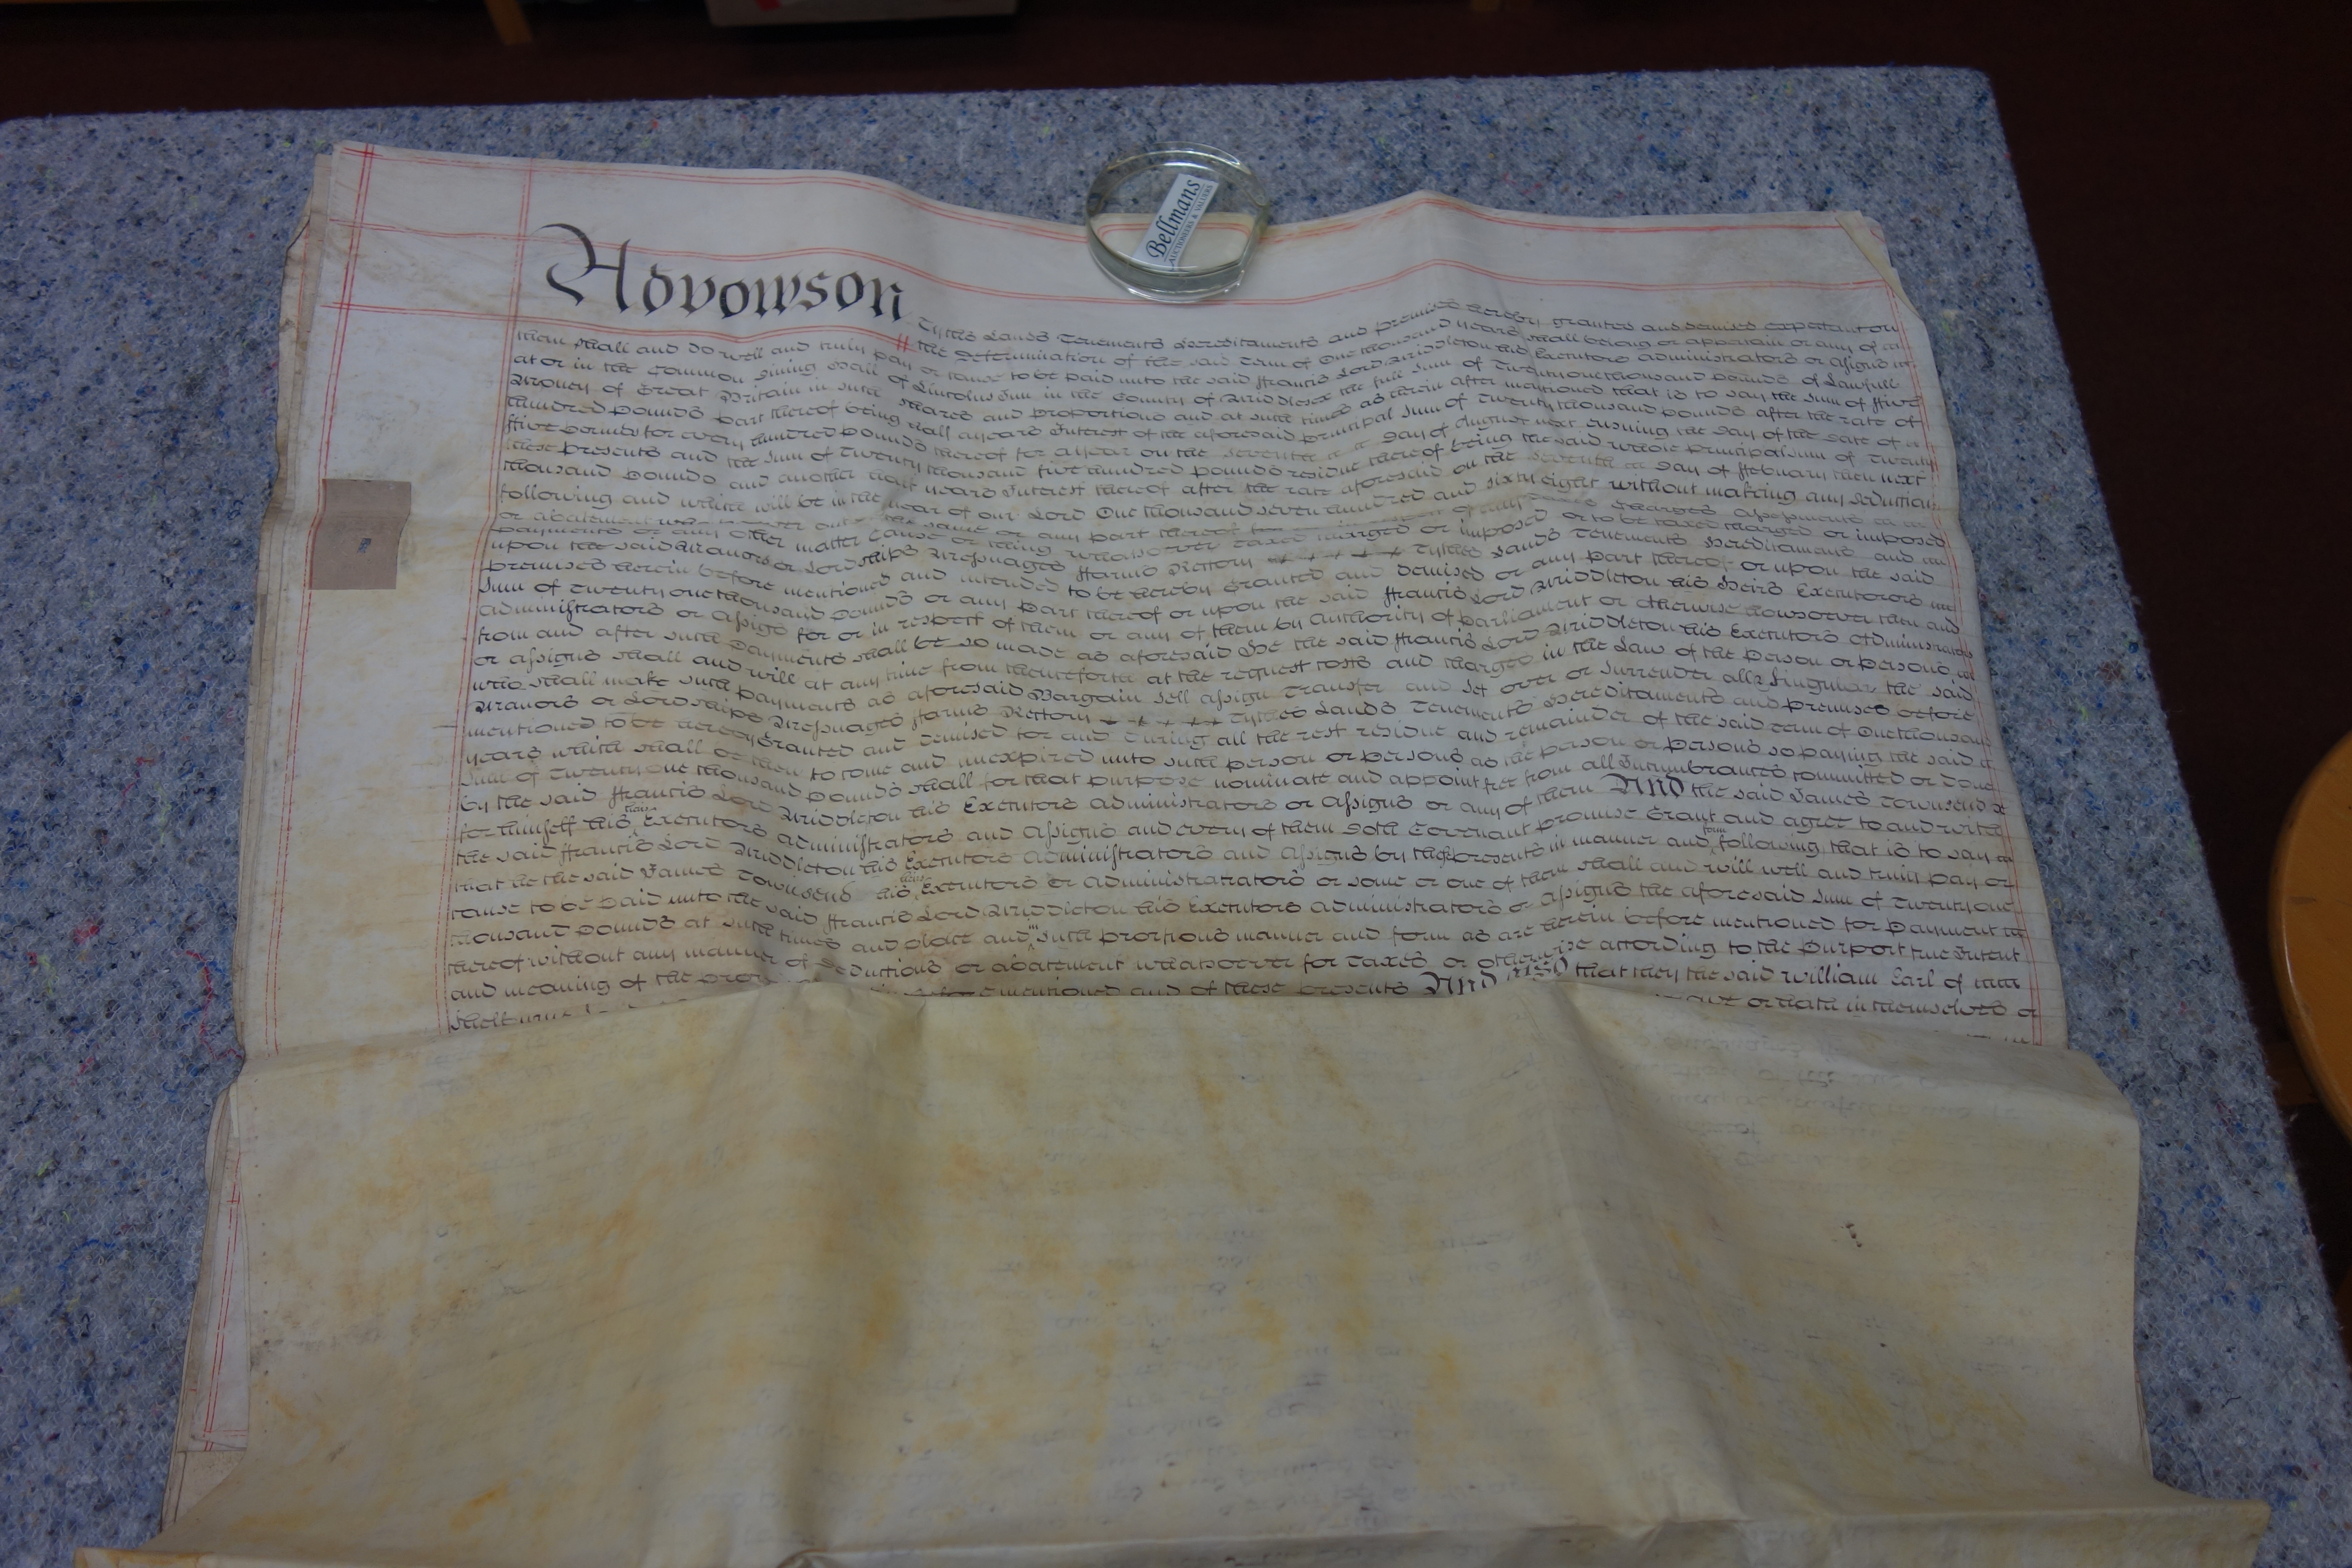 Bellmans
AUCTIONEERS & VALUERS
Advowson Tythes Lands Tenements Hereditaments and premises hereby granted and demised expectant on
the Determination of the said Term of One thousand years shall belong or appertain or any of
them shall and do well and truly pay or cause to be paid unto the said Francis Lord Middleton his Executors Administrators or Assigns
at or in the Common Dining Hall of Lincolns Inn in the County of Middlesex the full Sum of Twenty one thousand pounds of Lawfull
Money of Great Britain in such shares and proportions and at such times as herein after mentioned that is to say the Sum of ffive
hundred pounds part thereof being half a years Interest of the aforesaid principal Sum of Twenty thousand pounds after the rate of
ffive pounds for every hundred pounds thereof for a year on the Seventh Day of August next ensuing the Day of the Date of
these presents and the Sum of Twenty thousand five hundred pounds residue thereof being the said whole principal Sum of Twenty
thousand pounds and another half years Interest thereof after the rate aforesaid on the Seventh Day of ffebruary then next
following and which will be in the year of our Lord One thousand seven hundred and sixty eight without making any Deduction
or abatement out of the same or any part thereof
payments or any other matter Cause or thing whatsoever taxed charged or imposed or to be taxed charged or imposed
upon the said Manors or Lordships Messuages ffarms Rectory Tythes Lands Tenements Hereditaments and
premises herein before mentioned and intended to be hereby granted and demised or any part thereof or upon the said
Sum of Twenty one thousand pounds or any part thereof or upon the said ffrancis Lord Middleton his Heirs Executors
Administrators or Assigns for or in respect of them or any of them by Authority of parliament or otherwise howsoever then and
from and after such payments shall be so made as aforesaid He the said ffrancis Lord Middleton his Executors Administrators
or Assigns shall and will at any time from thenceforth at the request costs and charges in the Law of the person or persons
who shall make such payments as aforesaid Bargain Sell Assign Transfer and Set over or Surrender all & Singular the said
Manors or Lordships Messuages ffarms Rectory Tythes Lands Tenements Hereditaments and premises before
mentioned to be hereby granted and demised for and during all the rest residue and remainder of the said term of One thousand
years which shall be then to come and unexpired unto such person or persons as the person or persons so paying the said
Sum of Twenty one thousand pounds shall for that purpose nominate and appoint free from all Incumbrances committed or done
by the said ffrancis Lord Middleton his Executors Administrators or Assigns or any of them And the said James Townsend
for himself his heirs Executors Administrators and Assigns and every of them Doth Covenant promise Grant and agree to and with
the said ffrancis Lord Middleton his Executors Administrators and Assigns by these presents in manner and form following that is to say
that he the said James Townsend his heirs Executors or Administrators or some or one of them shall and will well and truly pay or
cause to be paid unto the said ffrancis Lord Middleton his Executors Administrators or Assigns the aforesaid Sum of Twenty one
thousand pounds at such times and place and in such proportions manner and form as are herein before mentioned for payment
thereof without any manner of Deductions or abatement whatsoever for Taxes or otherwise according to the purport true Intent
and meaning of the mentioned and of these presents And Also that they the said William Earl of
or hath in themselves or